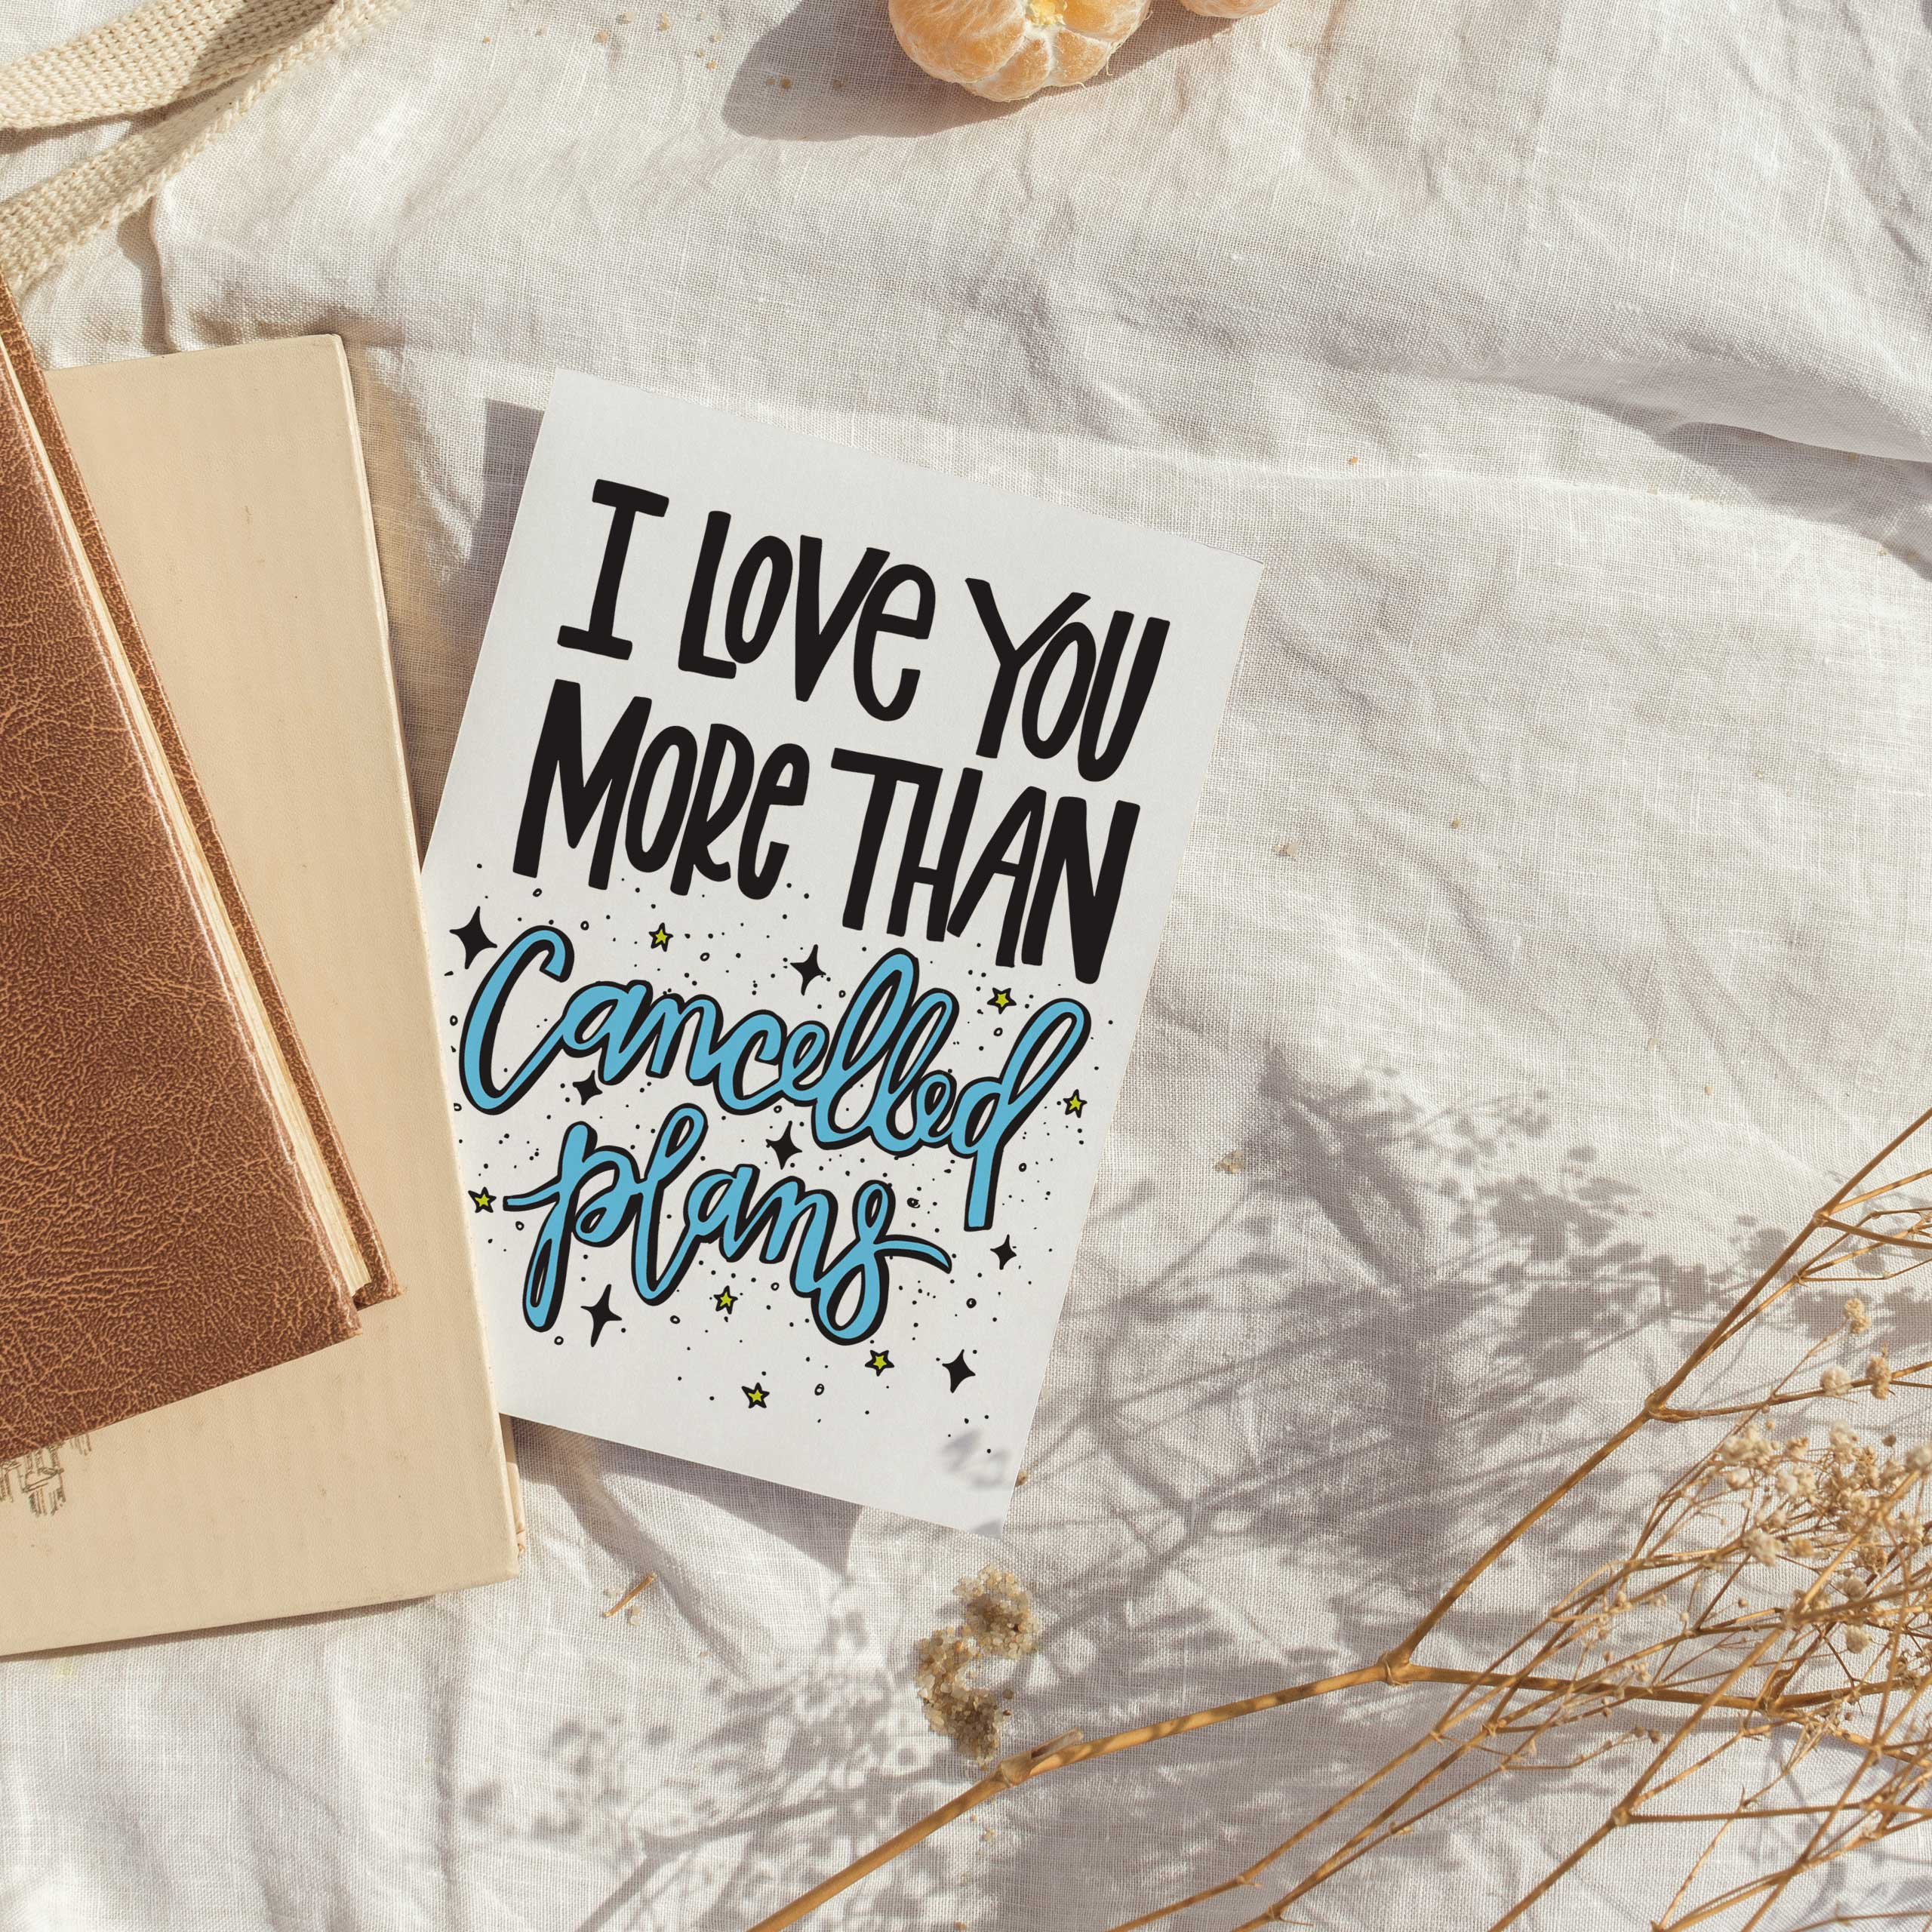 I LOVE YOU
MORE THAN
Cancelled
plans